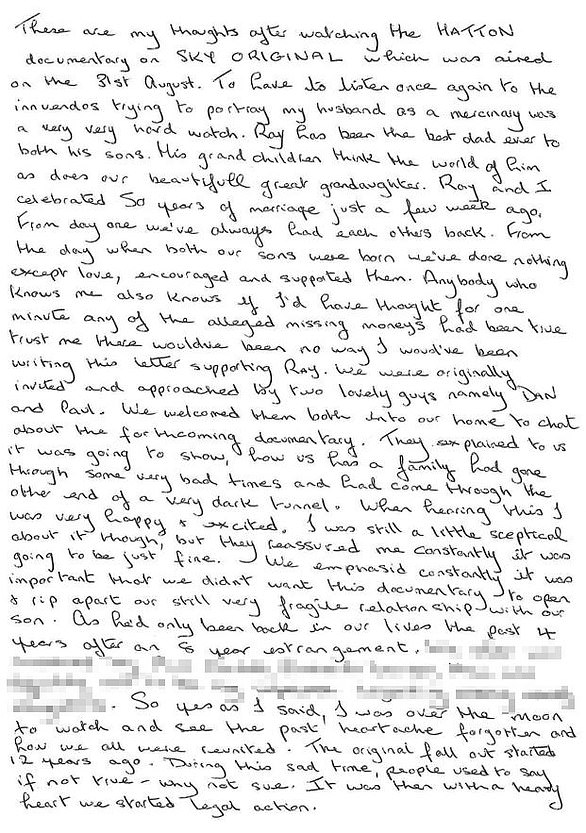 These are my thoughts after watching the HATTON
documentary on SKY ORIGINAL which was aired
on the 31st August. To have to listen once again to the
innuendos trying to portray my husband as a mercinary was
a very very hard watch. Ray has been the best dad ever to
both his sons. His grandchildren think the world of him
as does our beautifull great grandaughter. Ray and I
celebrated 50 years of marriage just a few week ago.
From day one we've always had each others back. From
the day when both our sons were born we've done nothing
except love, encouraged and supported them. Anybody who
knows me also knows if I'd have thought for one
minute any of the alleged missing money's had been true
trust me there wouldve been no way I woud've been
writing this letter supporting Ray. We were originally
invited and approached by two lovely guys namely DAN
and Paul. We welcomed them both into our home to chat
about the forthcoming documentary. They explained to us
it was going to show, how us has a family had gone
through some very bad times and had come through the
other end of a very dark tunnel. When hearing this I
was very happy + excited. I was still a little sceptical
about it though, but they reassured me constantly it was
going to be just fine. We emphasid constantly it was
important that we didnt want this documentary to open
& rip apart our still very fragile relationship with our
son. As he'd only been back in our lives the past 4
years after an 8 year estrangement.
. So yes as I said, I was over the moon
to watch and see the past heartache forgotten and
how we all were reunited. The original fall out started
12 years ago. During this sad time, people used to say
if not true - why not sue. It was then with a heavy
heart we started legal action.